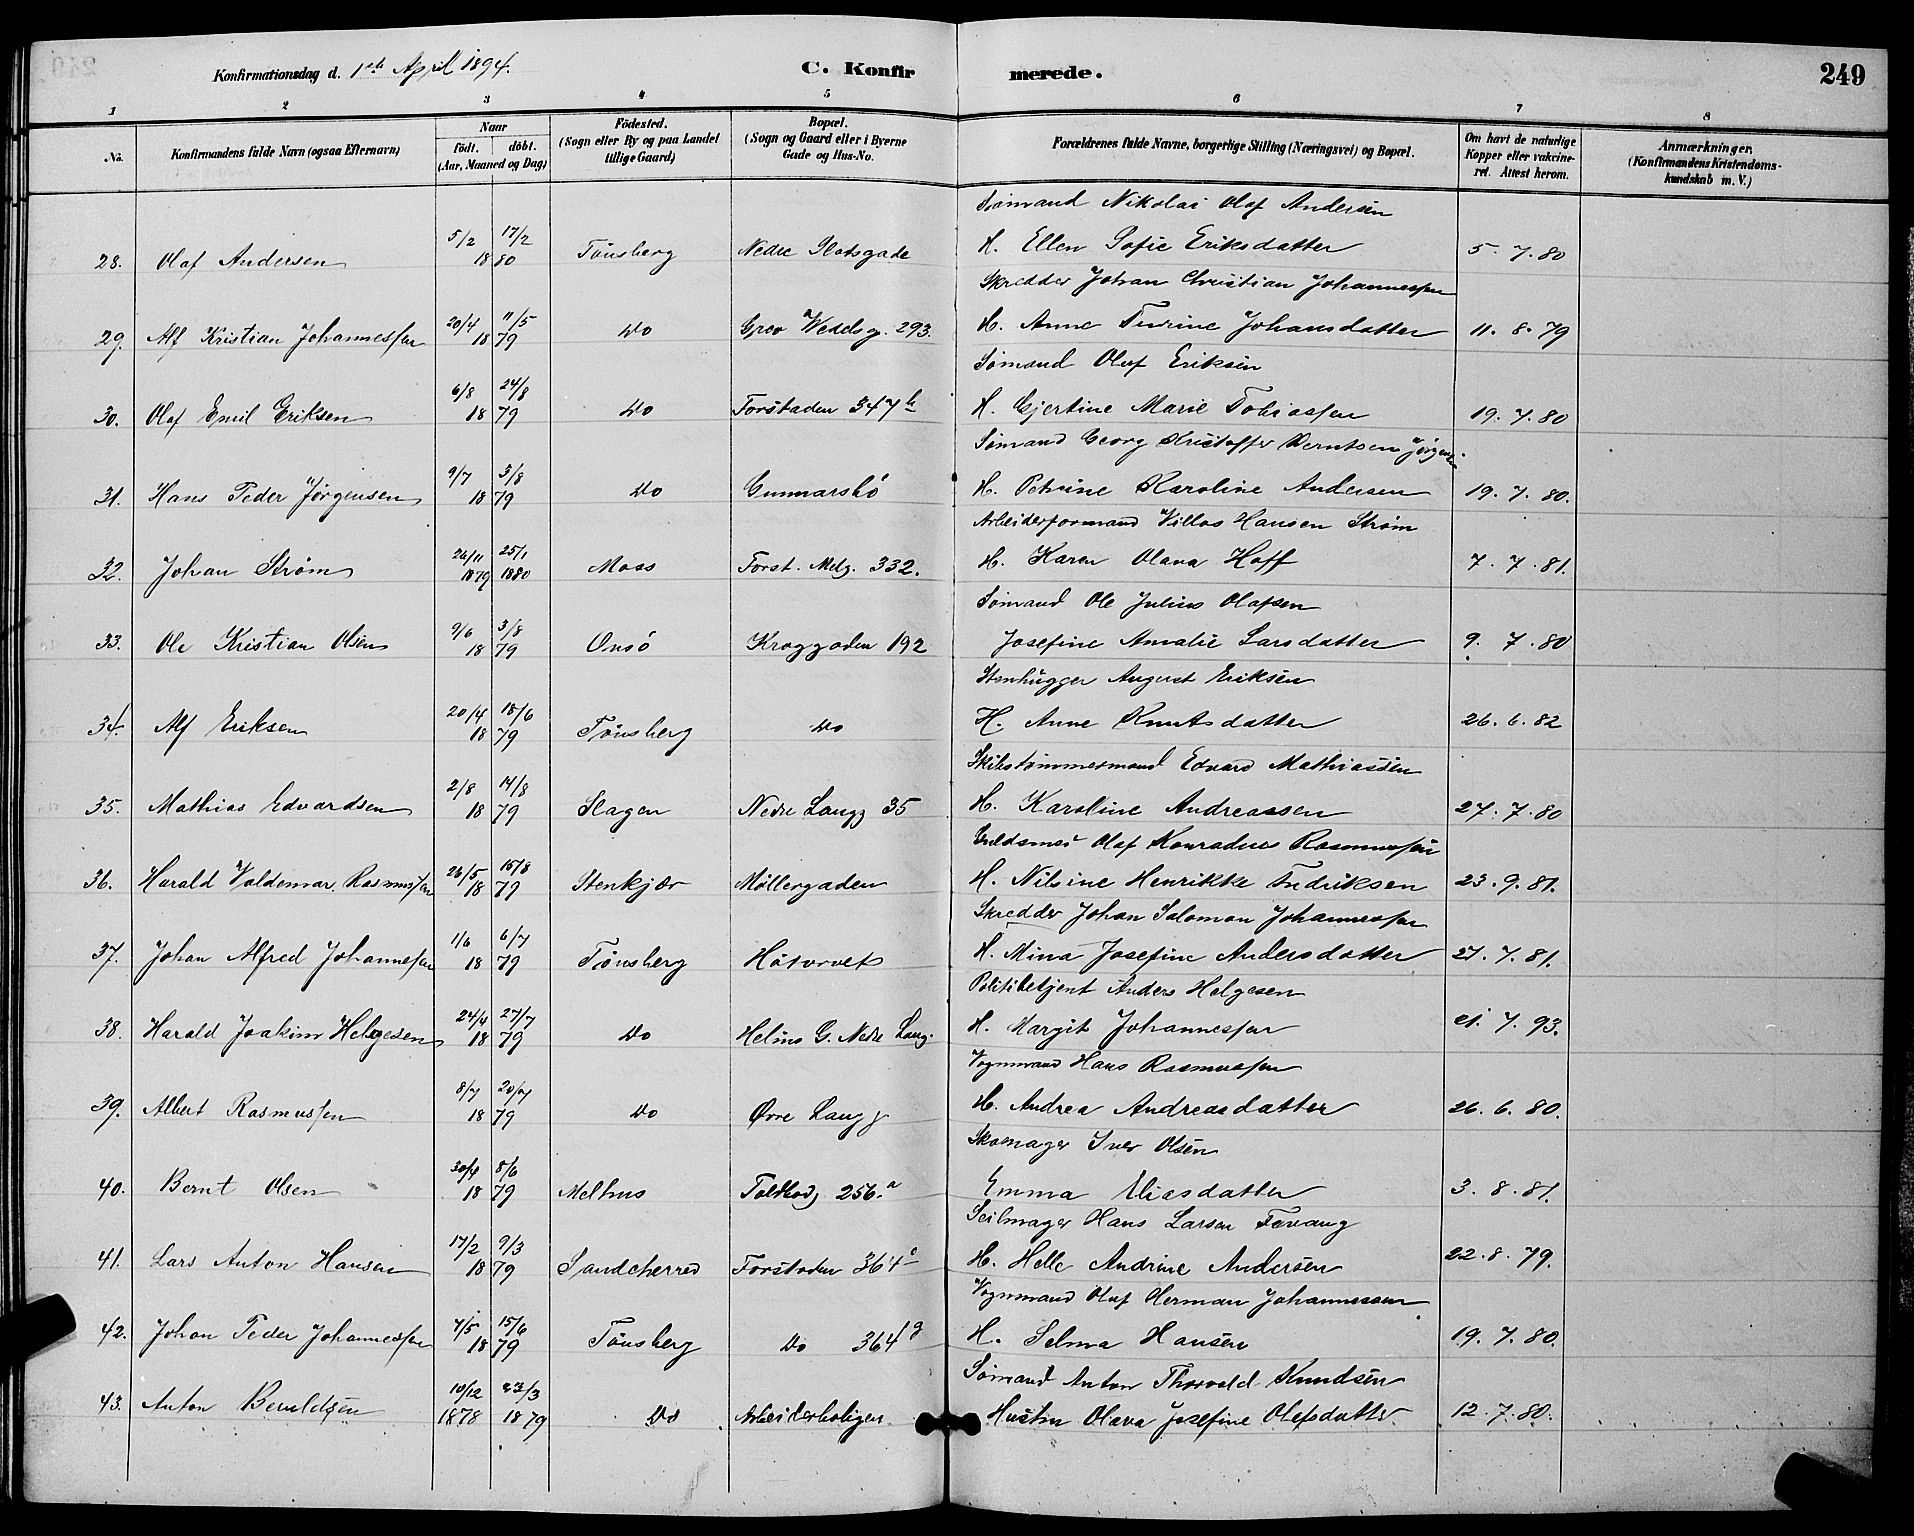 Konfirmationsdag d. 1ste April 1894. C. Konfirmerede. 249
1 2 3 4 5 6 7 8
No. Konfirmandens fulde Navn (ogsaa Efternavn) Naar født. døbt. (Aar, Maaned og Dag) Fødested. (Sogn eller By og paa Landet tillige Gaard) Bopæl. (Sogn og Gaard eller i Byerne Gade og Hus-No. Forældrenes fulde Navne, borgerlige Stilling (Næringsvei) og Bopæl. Om havt de naturlige Kopper eller vakcineret. Attest herom. Anmærkninger. (Konfirmandens Kristendomskundskab m. V.)
Sømand Nikolai Olaf Andersen
28. Olaf Andersen 5/2 17/2 1880 Tønsberg Nedre Slotsgade H. Ellen Sofie Eriksdatter 5. 7. 80
Skredder Johan Christian Johannessen
29. Alf Kristian Johannessen 20/4 11/5 1879 Do Grev Wedelsg. 293. H. Anne Johansdatter 11. 8. 79
Sømand Oluf Eriksen
30. Olaf Emil Eriksen 6/8 24/8 1879 Do Forstaden 347 b H. Gjertine Marie Tobiassen 19. 7. 80
Sømand Georg Kristoffer Berntsen Jørgensen
31. Hans Peder Jørgensen 9/7 3/8 1879 Do Gunnarsbø H. Petrine Karoline Andersen 19. 7. 80.
Arbeiderformand Villas Hansen Strøm
32. Johan Strøm 26/11 1879 25/1 1880 Moss Forst. Melg. 332. H. Karen Olava Hoff 7. 7. 81.
Sømand Ole Julius Olafsen
33. Ole Kristian Olsen 9/6 3/8 1879 Onsø Kroggaden 192 Josefine Amalie Larsdatter 9. 7. 80
Stenhugger August Eriksen
34. Alf Eriksen 20/4 18/6 1879 Tønsberg Do H. Anne Knutsdatter 26. 6. 82
Skibstømmermand Edvard Mathiassen
35. Mathias Edvardsen 2/8 14/8 1879 Slagen Nedre Langg 35 H. Karoline Andreassen 27. 7. 80
Guldsmed Olaf Konradus Rasmussen
36. Harald Valdemar Rasmussen 26/5 15/8 1879 Stenkjær Møllergaden H. Nilsine Henrikke Fredriksen 23. 9. 81.
Skredder Johan Salomon Johannessen
37. Johan Alfred Johannessen 1/6 6/7 1879 Tønsberg Høtorvet H. Mina Josefine Andersdatter 27. 7. 81.
Politibetjent Anders Helgesen
38. Harald Joakim Helgesen 24/4 27/7 1879 Do Helms G. Nedre Lang. H. Margit Johannessen 21. 7. 93.
Vognmand Hans Rasmussen
39. Albert Rasmussen 8/7 20/7 1879 Do Øvre Langg H. Andrea Andreasdatter 26. 6. 80.
Skomager Iver Olsen
40. Bernt Olsen 30/4 8/6 1879 Melhus Toldbodg 256. a Emma Eliasdatter 3. 8. 81.
Seilmager Hans Larsen Fevang
41. Lars Anton Hansen 17/2 9/3 1879 Sandeherred Forstaden 364 H. Helle Andrine Andersen 22. 8. 79.
Vognmand Oluf Herman Johannessen
42. Johan Peder Johannessen 7/5 15/6 1879 Tønsberg Do 364 g H. Selma Hansen 19. 7. 80.
Sømand Anton Thorvald Knudsen
43. Anton 10/12 1878 23/3 1879 Do Arbeiderboligen Hustru Olava Josefine Olefsdatter 12. 7. 80.